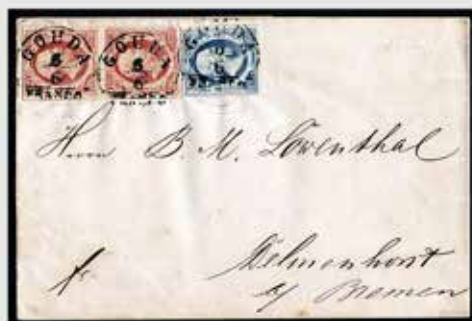 GOUDA
6
6
FRANCO
GOUDA
6
6
FRANCO
GOUDA
6
6
FRANCO
Herrn B. M. Löwenthal
fr
Delmenhorst
a/ Bremen